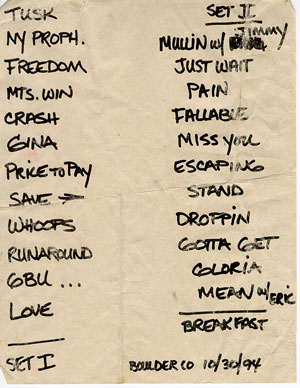 TUSK
NY PROPH.
FREEDOM
MTS. WIN
CRASH
GINA
PRICE TO PAY
SAVE →
WHOOPS
RUNAROUND
GBU ...
LOVE
SET I
SET II
MULLIN w/ Jimmy
JUST WAIT
PAIN
FALLABLE
MISS YOU
ESCAPING
STAND
DROPPIN
GOTTA GET
GLORIA
MEAN w/ ERIC
BREAKFAST
BOULDER CO 10/30/94